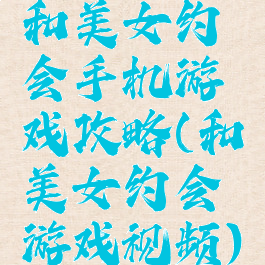 和美女约
会手机游
戏攻略(和
美女约会
游戏视频)